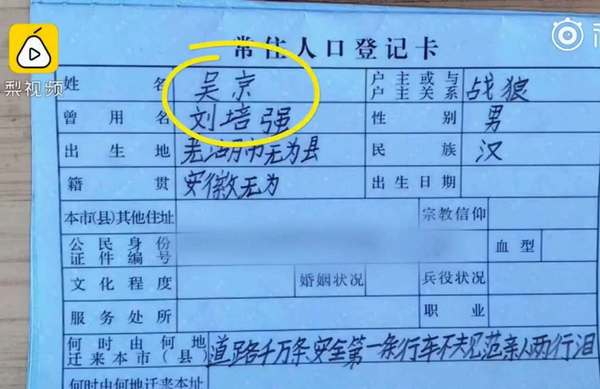 梨视频
常住人口登记卡
姓名 吴京 户主或与户主关系 战狼
曾用名 刘培强 性别 男
出生地 芜湖市无为县 民族 汉
籍贯 安徽无为 出生日期
本市(县)其他住址 宗教信仰
公民身份证件编号 血型
文化程度 婚姻状况 兵役状况
服务处所 职业
何时由何地迁来本市(县) 道路千万条安全第一条行车不夫见范亲人两行泪
何时由何地迁来本址